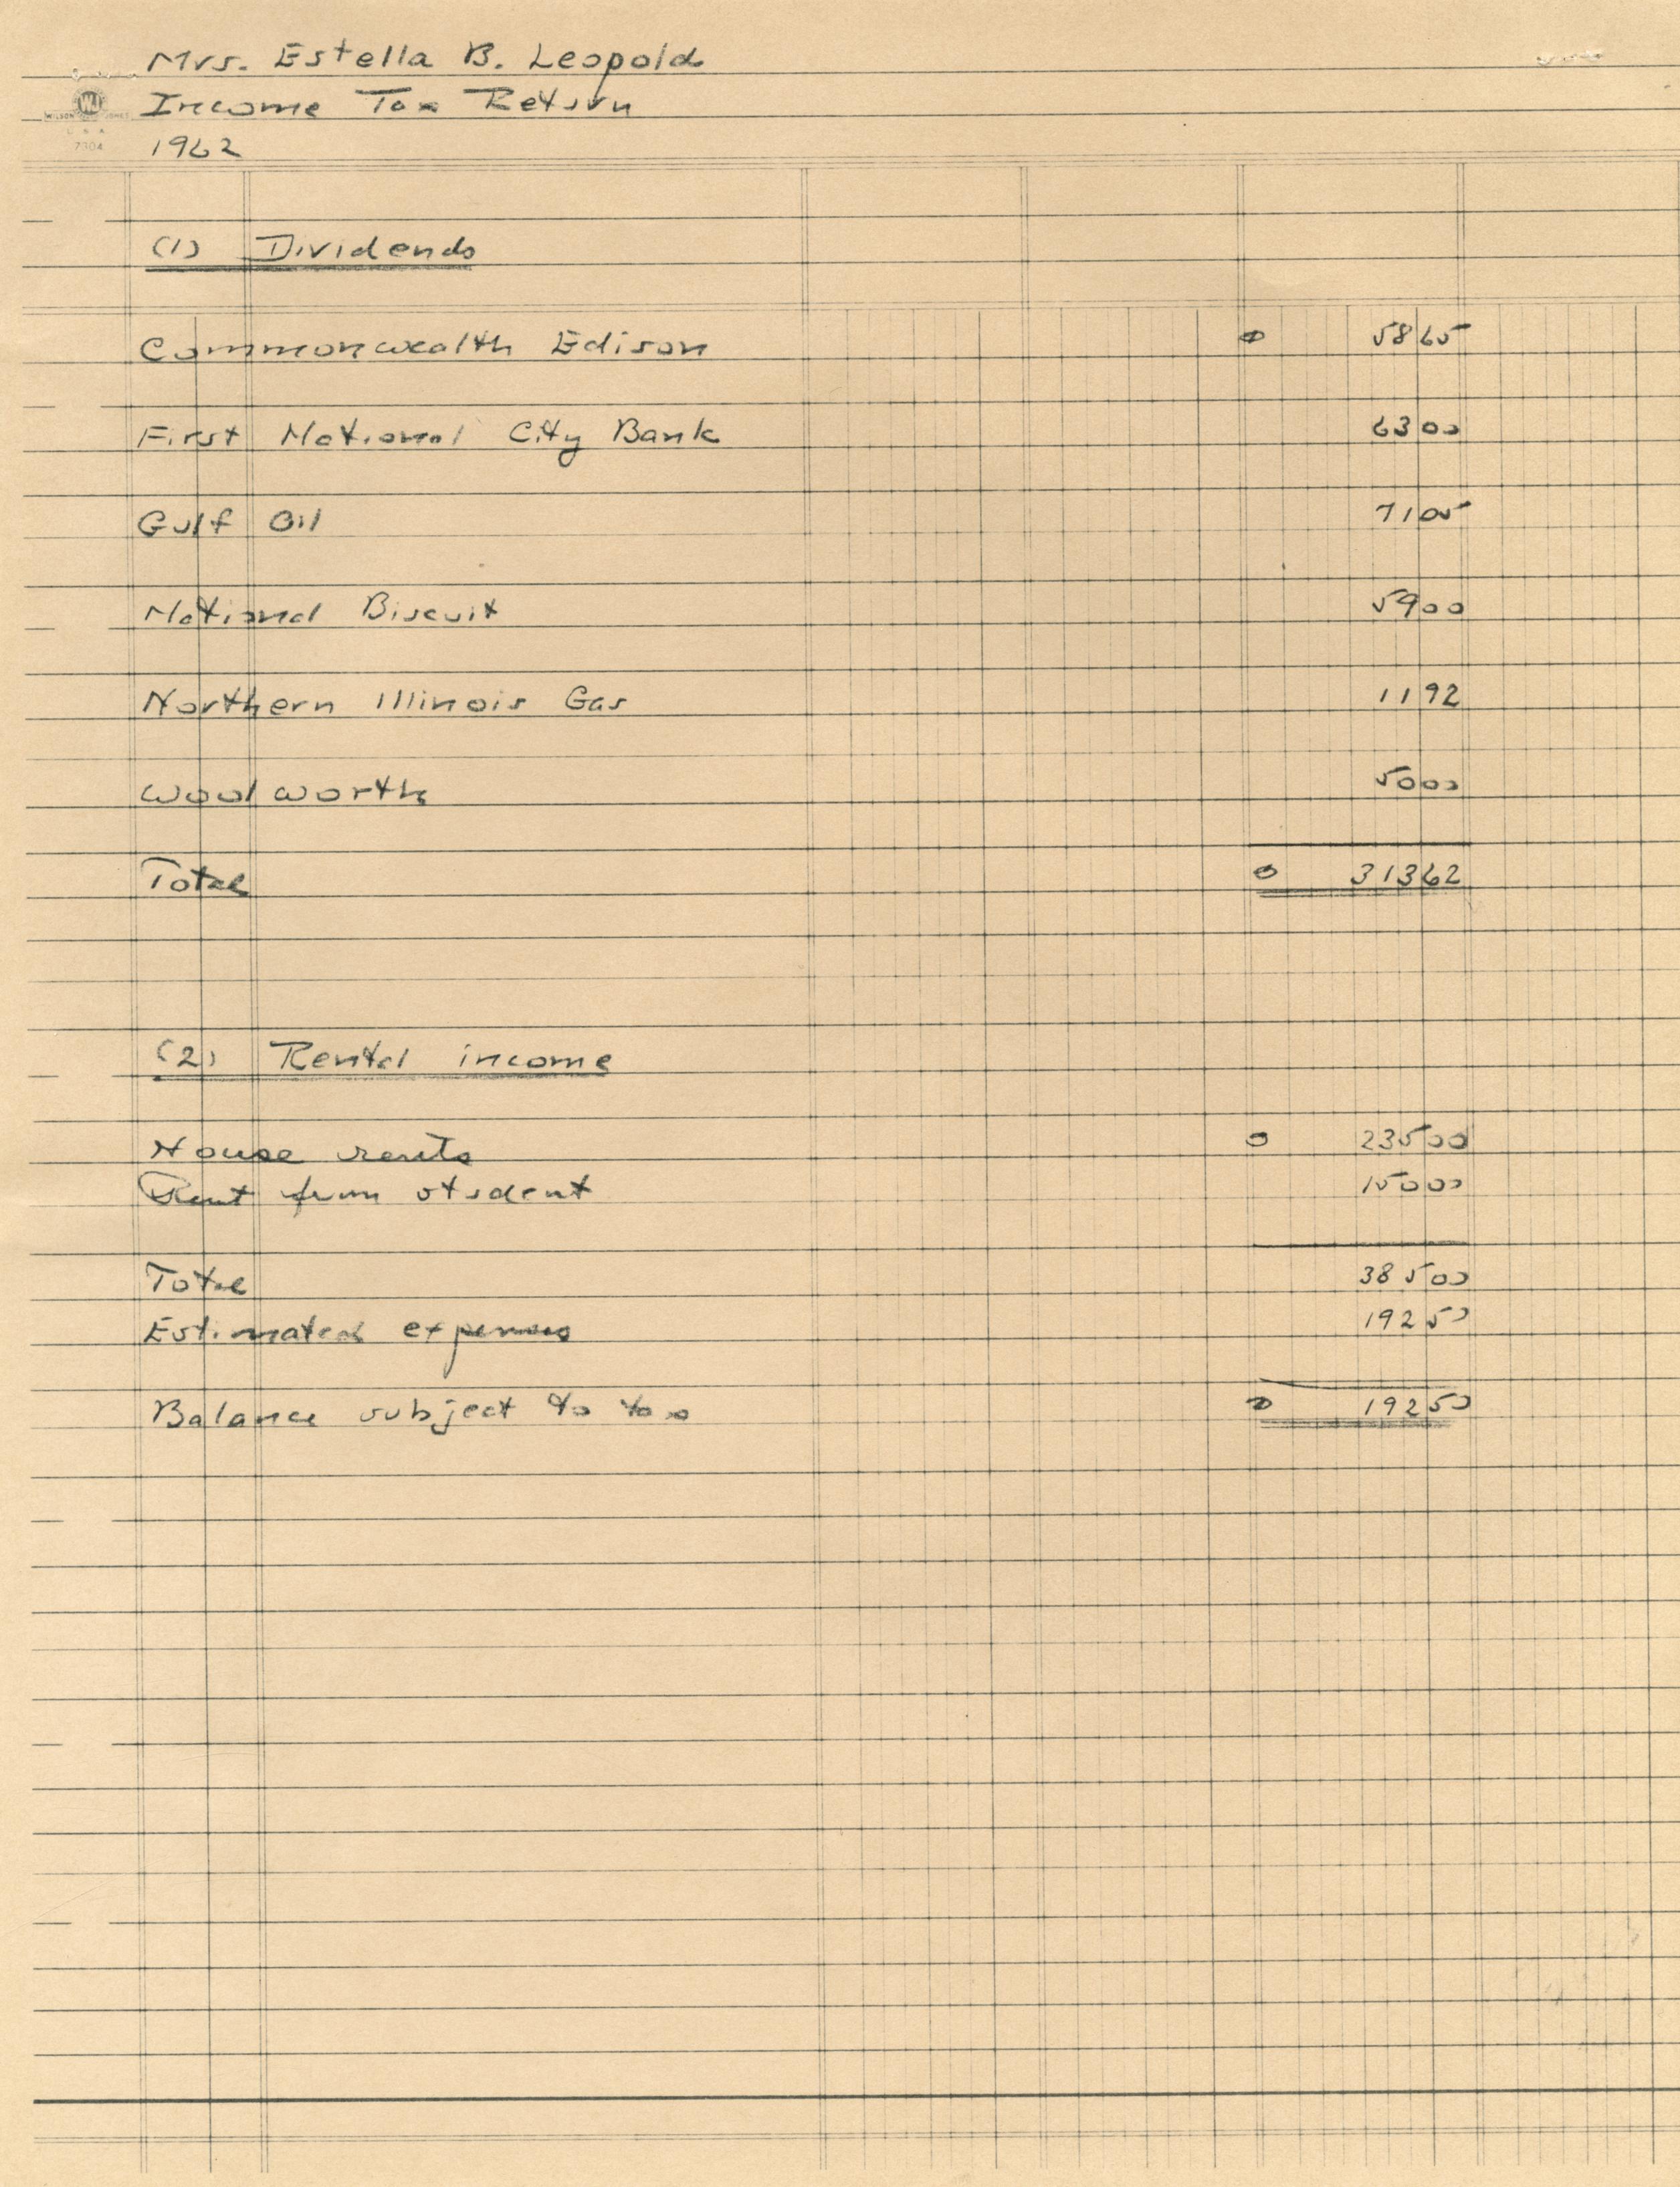 Mrs. Estella B. Leopold
Income Tax Return
WJ
WILSON JONES
U S A
7304
1962
(1) Dividends
Commonwealth Edison 5865
First National City Bank 6300
Gulf Oil 7105
National Biscuit 5900
Northern Illinois Gas 1192
Woolworth 5000
Total 31362
(2) Rental income
House rents 23500
Rent from student 15000
Total 38500
Estimated expenses 19250
Balance subject to tax 19250